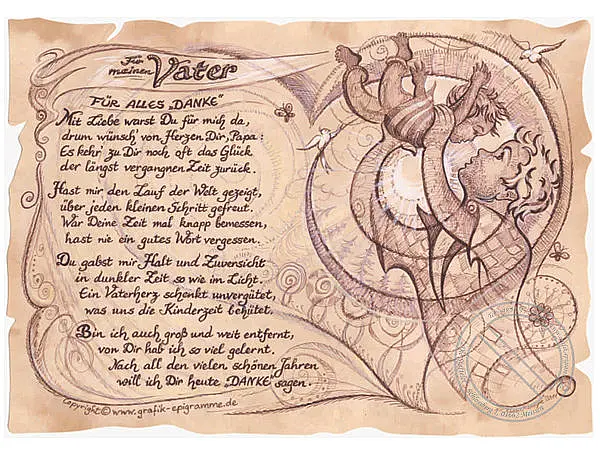 Für
meinen
Vater
FÜR ALLES „DANKE"
Mit Liebe warst Du für mich da,
drum wünsch' von Herzen Dir, Papa:
Es kehr' zu Dir noch oft das Glück
der längst vergangnen Zeit zurück.
Hast mir den Lauf der Welt gezeigt,
über jeden kleinen Schritt gefreut.
War Deine Zeit mal knapp bemessen,
hast nie ein gutes Wort vergessen.
Du gabst mir Halt und Zuversicht
in dunkler Zeit so wie im Licht.
Ein Vaterherz schenkt unvergütet,
was uns die Kinderzeit behütet.
Bin ich auch groß und weit entfernt,
von Dir hab ich so viel gelernt.
Nach all den vielen schönen Jahren
will ich Dir heute „DANKE" sagen.
Copyright © www.grafik-epigramme.de